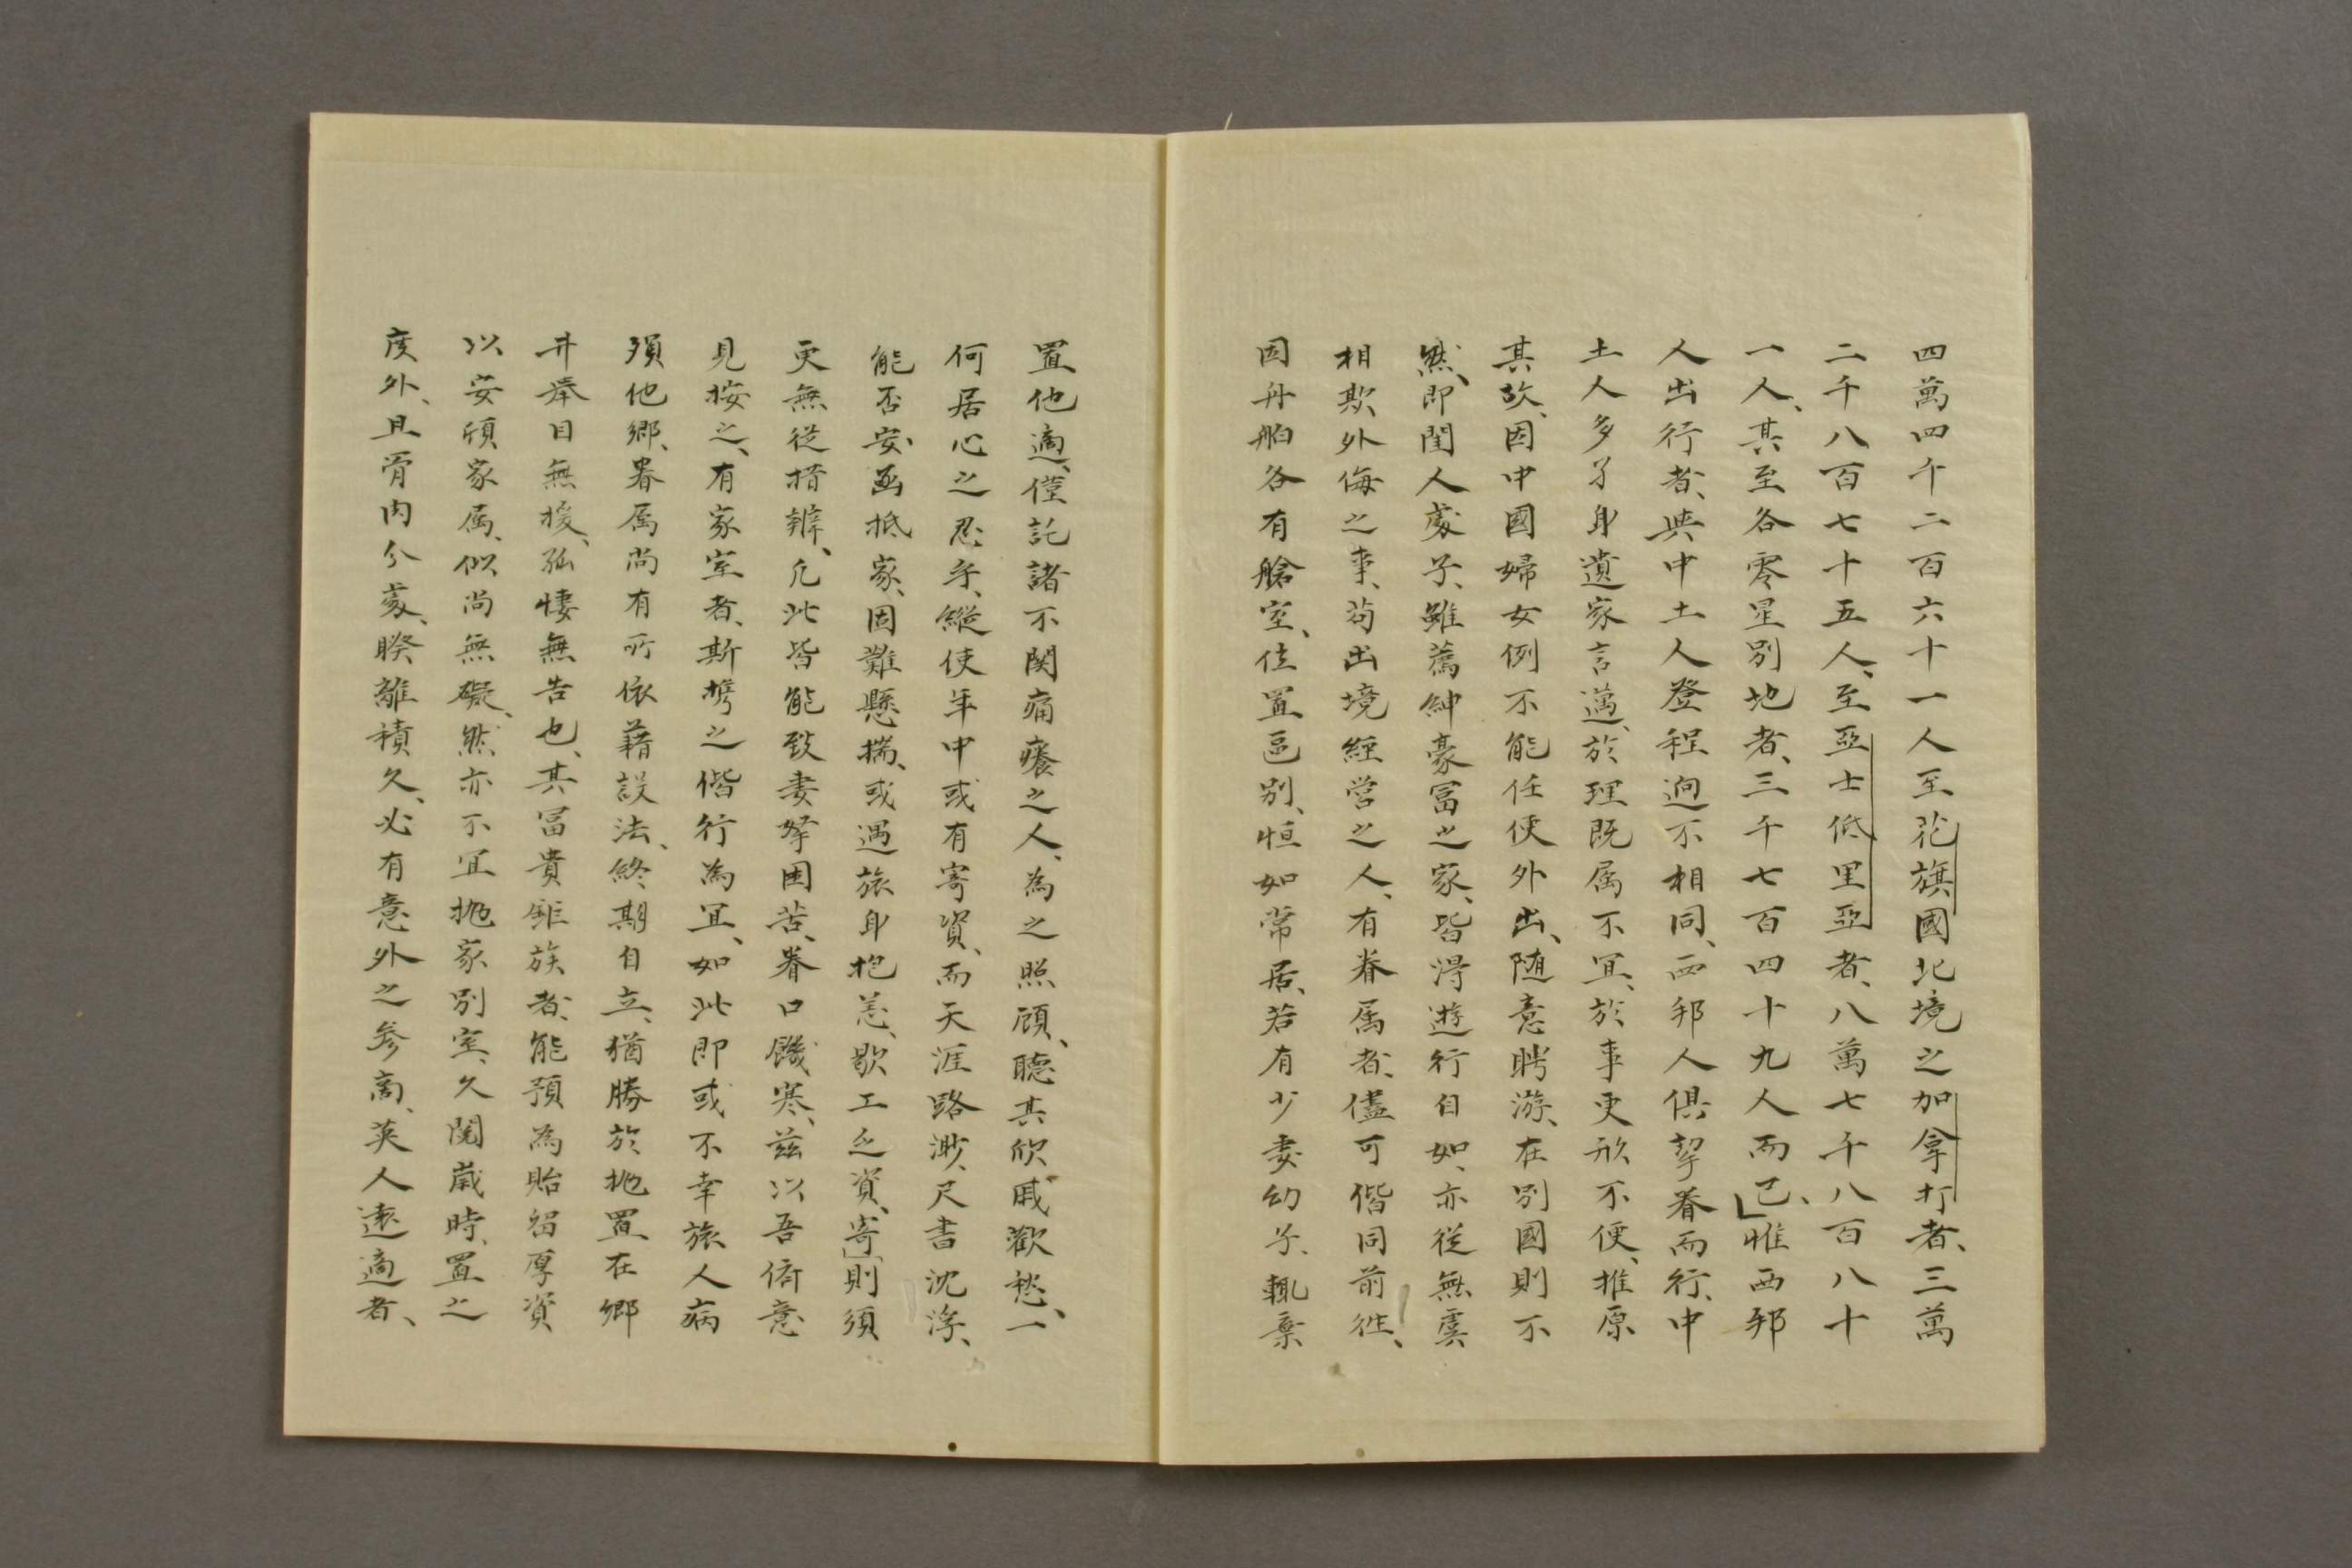 四萬四千二百六十一人至花旗國北境之加拿打者、三萬
二千八百七十五人、至亞士低里亞者、八萬七千八百八十
一人、其至各零星別地者、三千七百四十九人而已、」惟西邦
人出行者、與中土人登程逈不相同、西邦人俱挈眷而行、中
土人多孑身遺家言邁、於理既属不宜、於事更形不便、推原
其故、因中國婦女例不能任便外出、随意聘游、在別國則不
然、即閨人處子、雖薦紳豪冨之家、皆淂遊行自如、亦從無虞
相欺外侮之事、苟出境經営之人、有眷属者、儘可偕同前徃、
因舟舶各有艙室、位置區別、恒如常居、若有少妻幼子、輒棄
置他適、僅託諸不関痛癢之人、為之照顧、聽其欣戚歡愁、一
何居心之忍乎、縱使年中或有寄資、而天涯路渺、尺書沈浮、
能否安函抵家、固難懸揣、或遇旅身抱恙、歇工乏資、寄「則須
更無從措辦、凢此皆能致妻孥困苦、眷口饑寒、茲以吾儕意
見按之、有家室者、斯攜之偕行為宜、如此即或不幸旅人病
殞他鄉、眷属尚有所依藉設法、終期自立、猶勝於抛置在鄉
井舉目無援、孤悽無告也、其冨貴鉅族者、能預為貽留厚資
以安頓家属、似尚無礙、然亦不宜抛家別室、久閲歳時、置之
度外、且骨肉分處、睽離積久、必有意外之參商、英人遠適者、